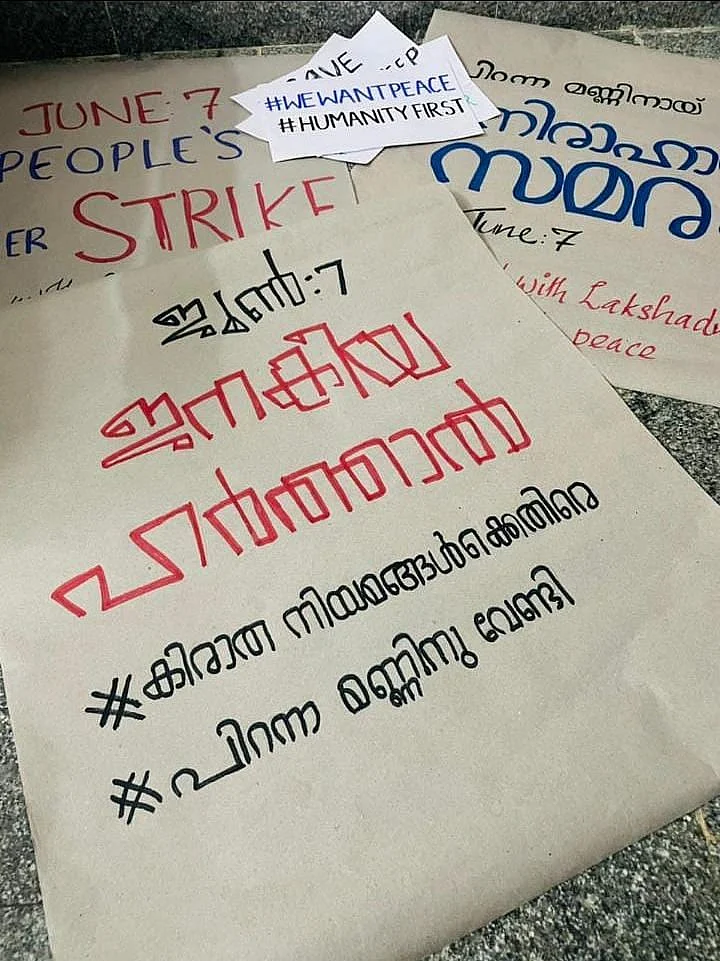 JUNE: 7
PEOPLE'S
ER STRIKE
#WEWANTPEACE
#HUMANITY FIRST
പിറന്ന മണ്ണിനായ്
നിരാഹാ
സമര
June: 7
with Lakshad
peace
ജൂൺ:7
ജനകീയ
ഹർത്താൽ
#കിരാത നിയമങ്ങൾക്കെതിരെ
#പിറന്ന മണ്ണിനു വേണ്ടി